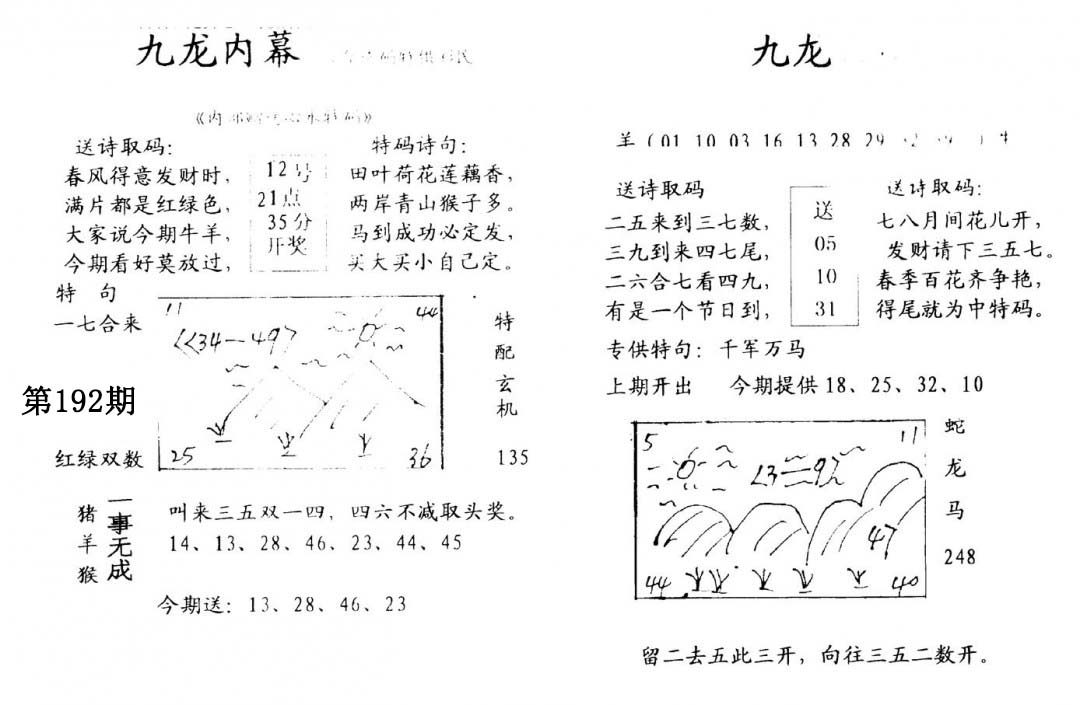 九龙内幕
送诗取码：
春风得意发财时，
满片都是红绿色，
大家说今期牛羊，
今期看好莫放过，
12号
21点
35分
开奖
特码诗句：
田叶荷花莲藕香，
两岸青山猴子多。
马到成功必定发，
买大买小自己定。
特 句
一七合来
第192期
红绿双数
11
44
34—49
25
36
特
配
玄
机
135
猪
羊
猴
一事无成
叫来三五双一四，四六不减取头奖。
14、13、28、46、23、44、45
今期送：13、28、46、23
九龙
羊（01 10 03 16 13 28 29
送诗取码
二五来到三七数，
三九到来四七尾，
二六合七看四九，
有是一个节日到，
送
05
10
31
送诗取码：
七八月间花儿开，
发财请下三五七。
春季百花齐争艳，
得尾就为中特码。
专供特句：千军万马
上期开出 今期提供 18、25、32、10
5
11
47
44
40
蛇
龙
马
248
留二去五此三开，向往三五二数开。